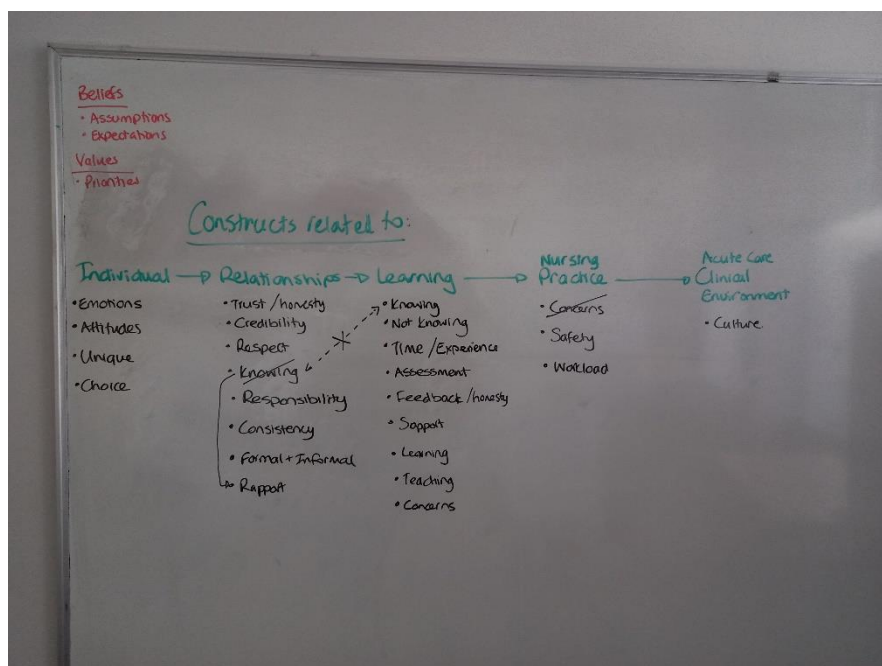 Beliefs
• Assumptions
• Expectations
Values
• Priorities
Constructs related to:
Individual → Relationships → Learning → Nursing Practice → Acute Care Clinical Environment
• Emotions
• Attitudes
• Unique
• Choice
• Trust/honesty
• Credibility
• Respect
• Knowing
• Responsibility
• Consistency
• Formal + Informal
• Rapport
• Knowing
• Not Knowing
• Time/Experience
• Assessment
• Feedback/honesty
• Support
• Learning
• Teaching
• Concerns
• Concerns
• Safety
• Workload
• Culture